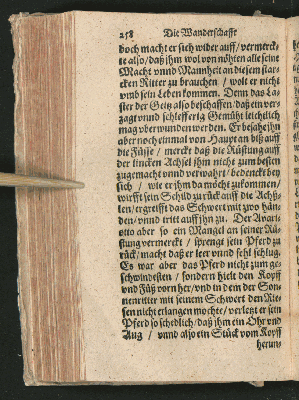 258 Die Wanderschafft
doch macht er sich wider auff / vermerck-
te also / daß ihm wol von nöhten alle seine
Macht vnnd Mannheit an diesem star-
cken Ritter zu brauchen / wolt er nicht
vmb sein Leben kommen. Denn das La-
ster der Geitz also beschaffen / daß ein ver-
zagt vnnd schlefferig Gemüht leichtlich
mag vberwunden werden. Er besahe ihn
aber noch einmal von Haupt an biß auff
die Füsse / merckt daß die Rüstung auff
der lincken Achsel ihm nicht zum besten
zugemacht vnnd verwahrt / bedenckt bey
sich / wie er ihm da möcht zukommen /
wirfft sein Schild zu rück auff die Achs-
len / ergreifft das Schwert mit zwo hän-
den / vnnd tritt auff ihn zu. Der Avari-
otto aber so ein Mangel an seiner Rü-
stung vermerckt / sprengt sein Pferd zu
rück / macht daß er leer vnnd fehl schlug.
Es war aber das Pferd nicht zum ge-
schwindesten / sondern hielt den Kopff
vnd Füß vorn her / vnd in dem der Son-
nenritter mit seinem Schwert den Rie-
sen nicht erlangen mochte / verletzt er sein
Pferd so schedlich / daß ihm ein Ohr vnd
Aug / vnnd also ein Stück vom Kopff
herun-